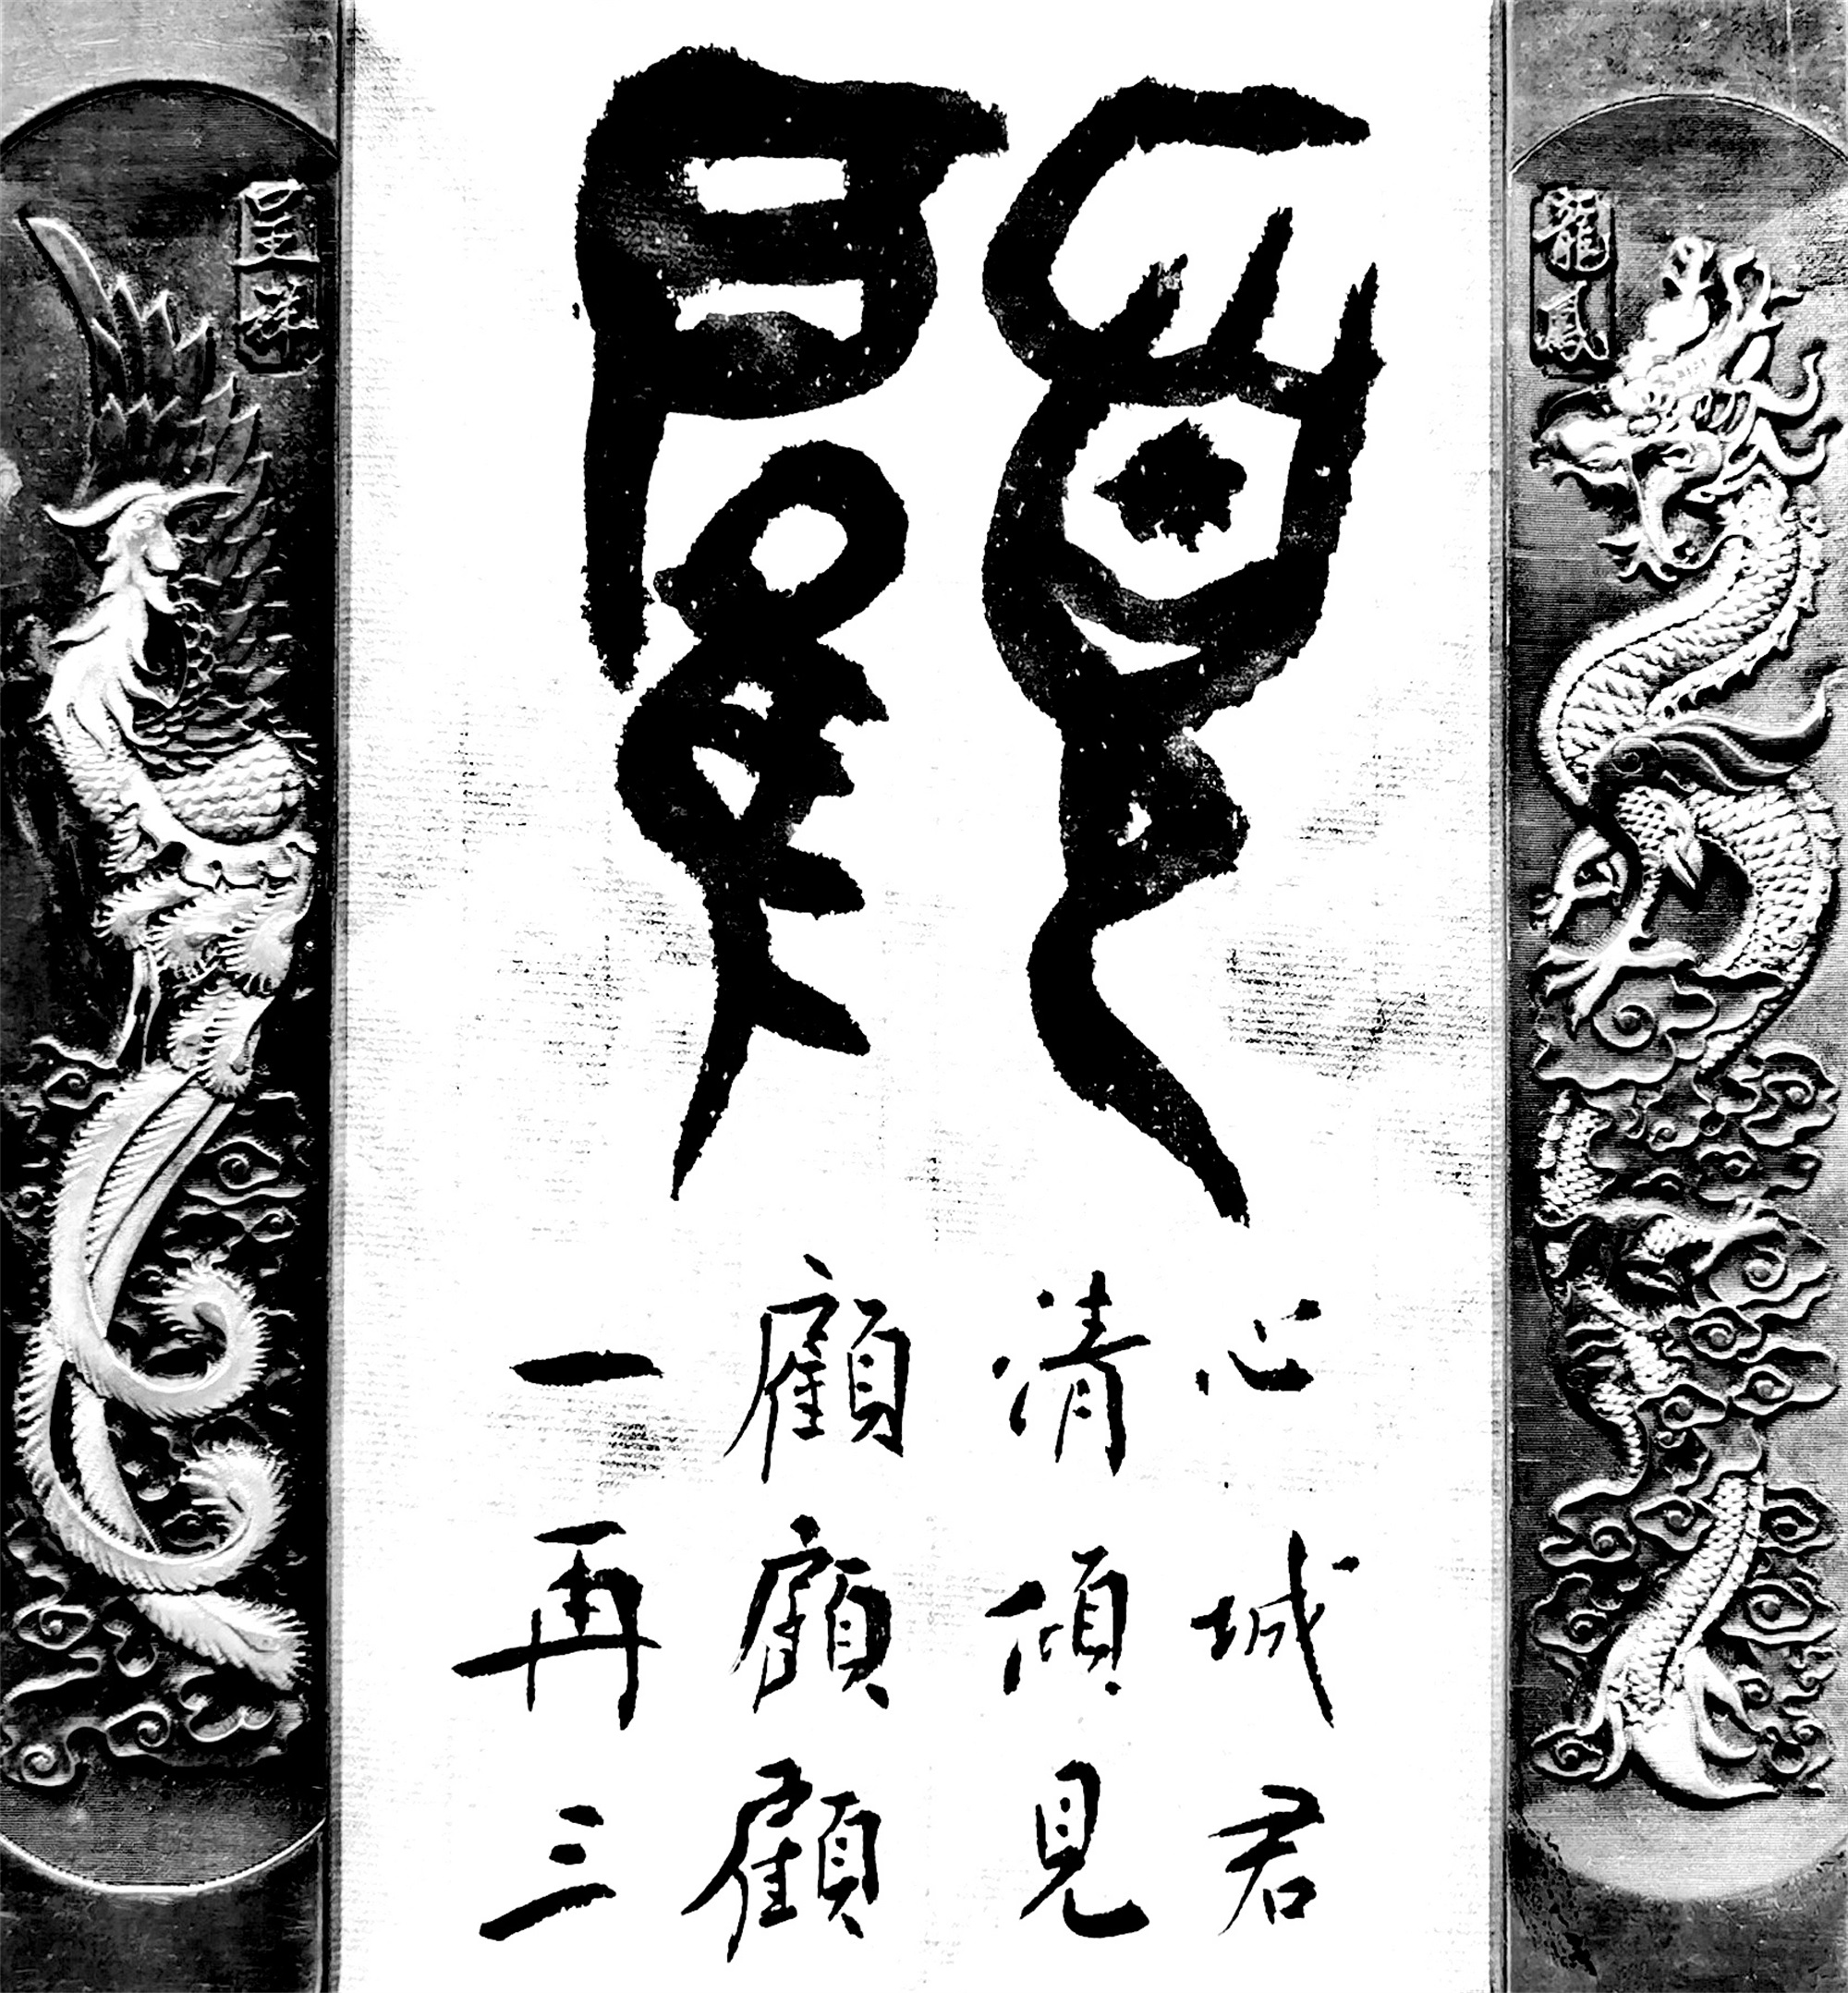 顧
一顧清心
再顧傾城
三顧見君
龍鳳
呈祥